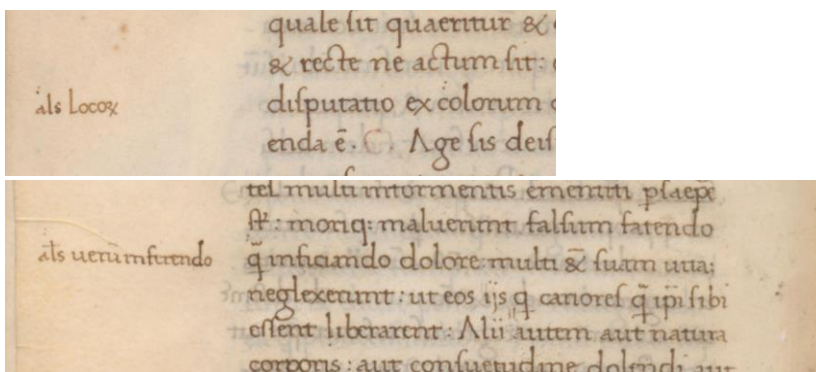 quale sit quaeritur &
& recte ne actum sit:
als locoꝝ
disputatio ex colorum
enda ē. C. Age sis deis
tel multi intormentis ementiti ꝑsaepe
st̄: moriq: maluerunt falsum fatendo
als uerū infitendo
q̄ inficiando dolore: multi & suam uita;
neglexerunt: ut eos ijs q̄ cariores q̄ ip̄i sibi
essent liberarent: Alii autem aut natura
corporis: aut consuetudine dolendi aut